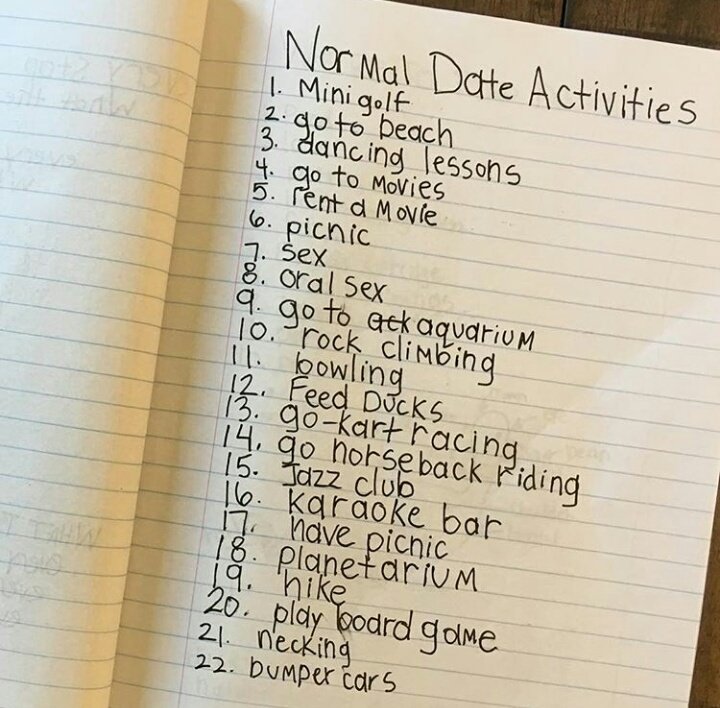 Normal Date Activities
1. Mini golf
2. go to beach
3. dancing lessons
4. go to movies
5. rent a movie
6. picnic
7. sex
8. oral sex
9. go to ack aquarium
10. rock climbing
11. bowling
12. Feed Ducks
13. go-kart racing
14. go horseback riding
15. Jazz club
16. karaoke bar
17. have picnic
18. planetarium
19. hike
20. play board game
21. necking
22. bumper cars